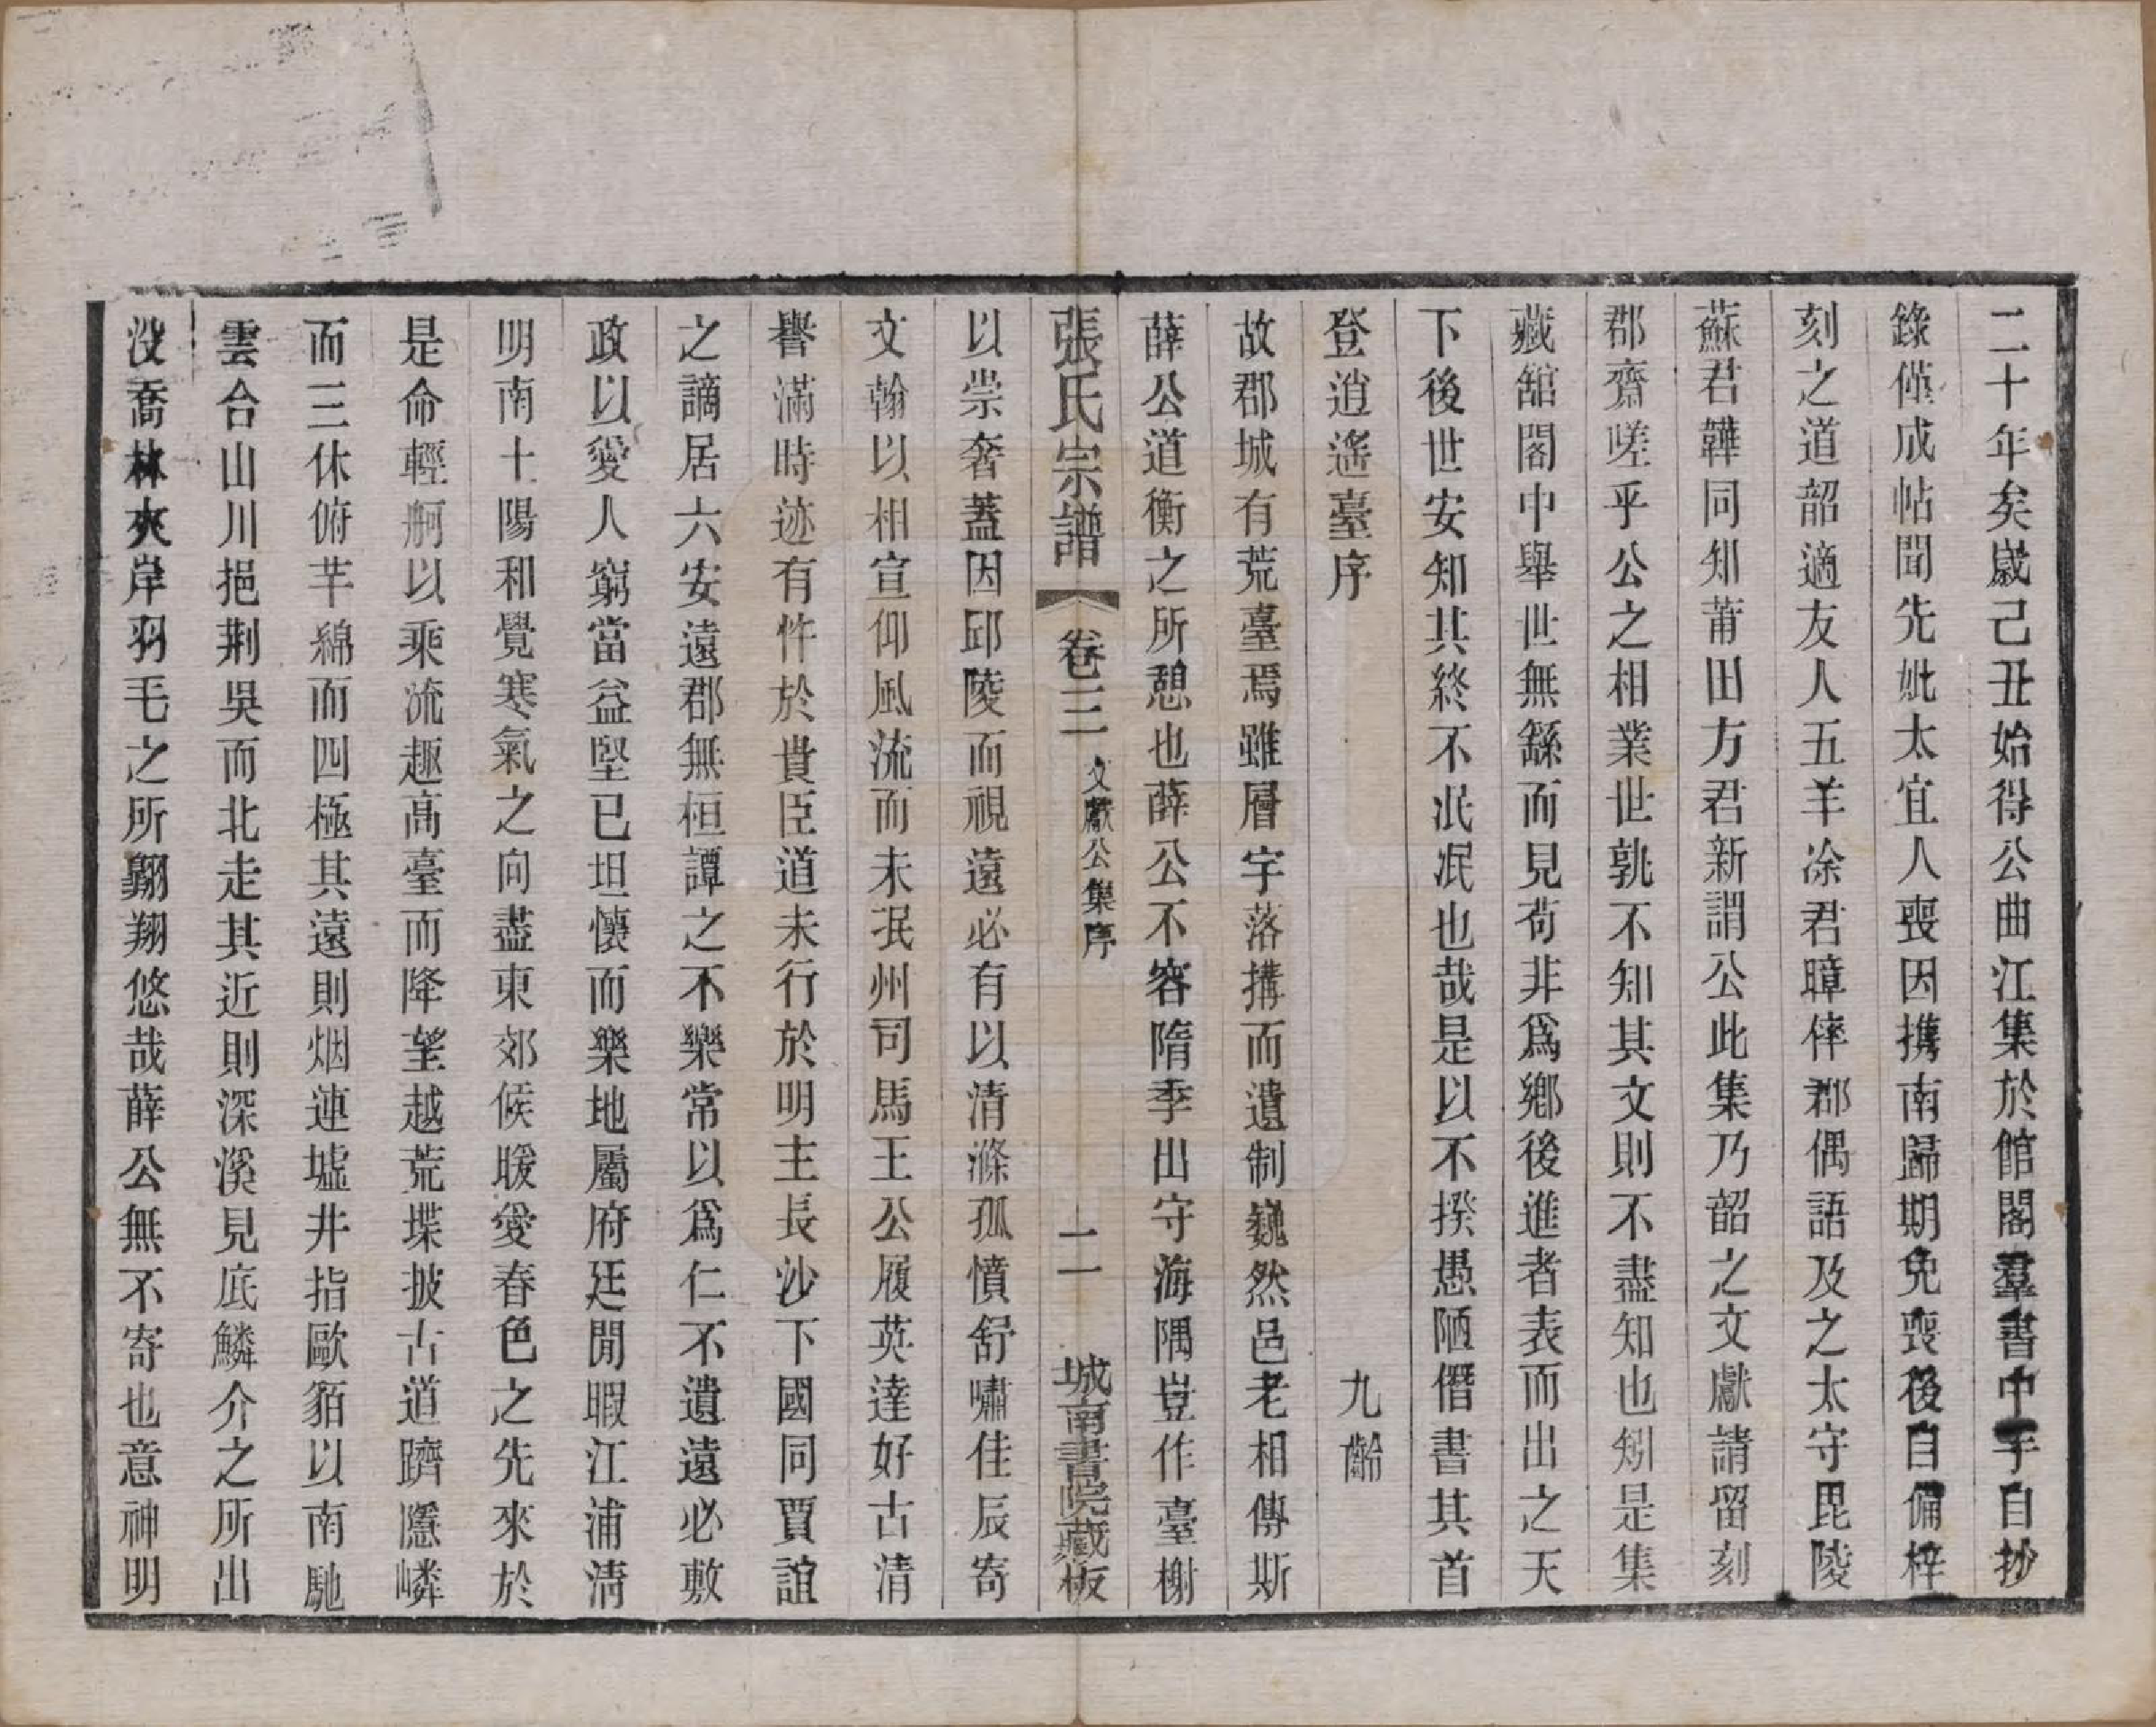 二十年矣歲己丑始得公曲江集於館閣羣書中手自抄
錄僅成帖聞先妣太宜人喪因携南歸期免喪後自備梓
刻之道韶適友人五羊凃君暲倅郡偶語及之太守毘陵
蘇君韡同知莆田方君新謂公此集乃韶之文獻請留刻
郡齋嗟乎公之相業世孰不知其文則不盡知也矧是集
藏舘閣中舉世無繇而見茍非爲鄉後進者表而出之天
下後世安知其終不泯泯也哉是以不揆愚陋僭書其首
登逍遙臺序　九齡
故郡城有荒臺焉雖層宇落搆而遺制巍然邑老相傳斯
薛公道衡之所憩也薛公不容隋季出守海隅豈作臺榭
張氏宗譜　卷三　文獻公集序　二　城南書院藏板
以崇奢蓋因邱陵而視遠必有以清滌孤憤舒嘯佳辰寄
文翰以相宣仰風流而未泯州司馬王公履英達好古清
譽滿時迹有忤於貴臣道未行於明主長沙下國同賈誼
之謫居六安遠郡無桓譚之不樂常以爲仁不遺遠必敷
政以愛人窮當益堅已坦懷而樂地屬府廷閒暇江浦清
明南十陽和覺寒氣之向盡東郊候暖愛春色之先來於
是命輕舸以乘流趣高臺而降望越荒堞披古道躋隱嶙
而三休俯芊綿而四極其遠則烟連墟井指歐貊以南馳
雲合山川挹荆吳而北走其近則深溪見底鱗介之所出
沒喬林夾岸羽毛之所翺翔悠哉薛公無不寄也意神明